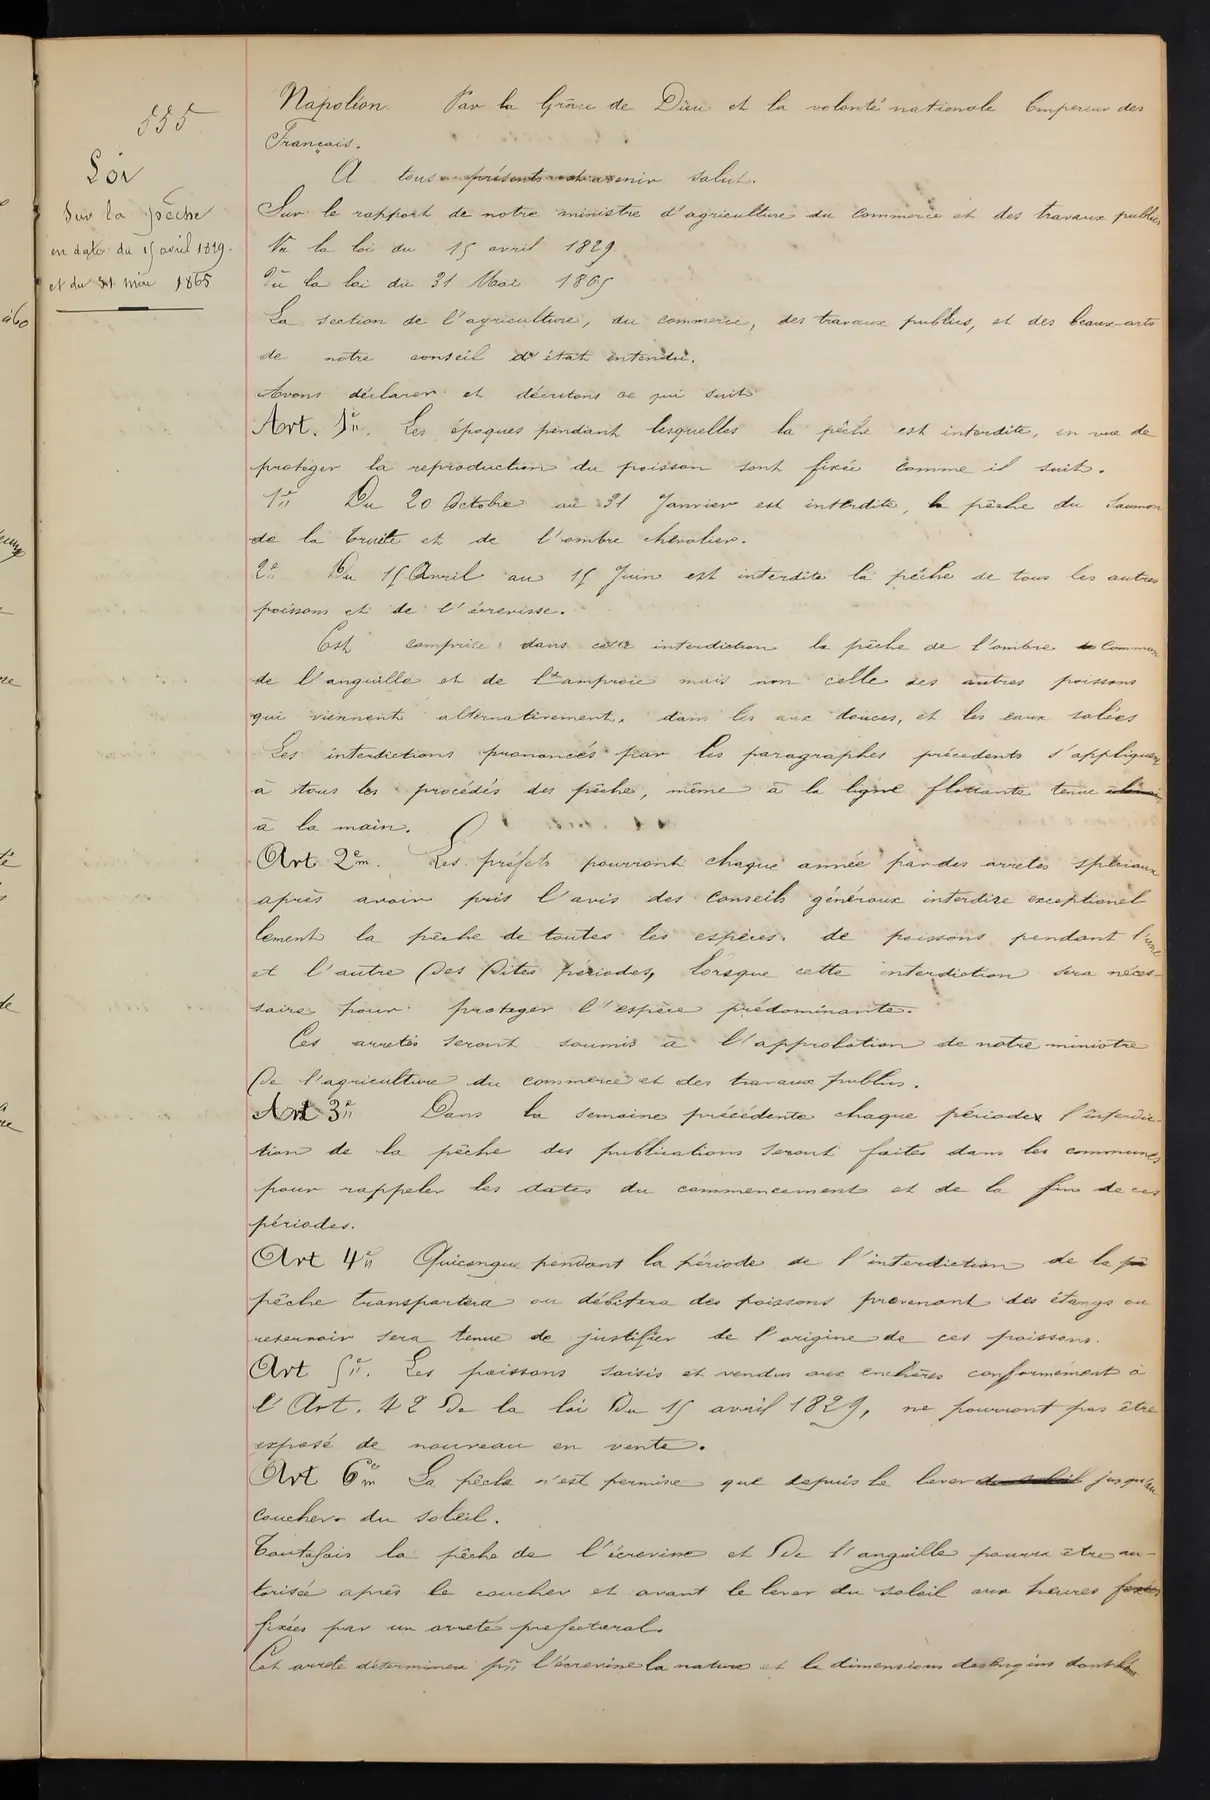 555
Loi
Sur la pêche
en date du 15 avril 1829.
et du 31 mai 1865
Napoléon. Par la Grâce de Dieu et la volonté nationale Empereur des
Français.
A tous présents et avenir salut.
Sur le rapport de notre ministre d'agriculture du commerce et des travaux publics
Vu la loi du 15 avril 1829.
Vu la loi du 31 Mai 1865
La section de l'agriculture, du commerce, des travaux publics, et des beaux-arts
de notre conseil d'état entendu.
Avons déclarer et décretons ce qui suit
Art. 1er. Les époques pendant lesquelles la pêche est interdite, en vue de
proteger la reproduction du poisson sont fixée comme il suit.
1er Du 20 Octobre au 31 Janvier est interdite, la pêche du Saumon
de la truite et de l'ombre chevalier.
2e Du 15 Avril au 15 Juin est interdite la pêche de tous les autres
poissons et de l'écrevisse.
Est comprise dans cette interdiction la pêche de l'ombre Commun
de l'anguille et de l'amproie mais non celle des autres poissons
qui viennent alternativement, dans les aux douces, et les eaux salées
Les interdictions prononcés par les paragraphes précedents s'appliquent
à tous les procédés des pêche, même à la ligne flottante tenue
à la main.
Art. 2em. Les préfets pourront chaque année par des arretés spéciaux
après avoir pris l'avis des conseils généraux interdire exceptionel
lement la pêche de toutes les espèces de poissons pendant l'une
et l'autre des dites périodes, lorsque cette interdiction sera néces-
saire pour proteger l'espèce prédominante.
Ces arretés seront soumis à l'approbation de notre ministre
de l'agriculture du commerce et des travaux publics.
Art 3e Dans la semaine précédente chaque période l'interdic-
tion de la pêche des publications seront faites dans les communes
pour rappeler les dates du commencement et de la fin de ces
périodes.
Art 4e Quiconque pendant la période de l'interdiction de la pê
pêche transportera ou débitera des poissons provenant des étangs ou
reservoir sera tenue de justifier de l'origine de ces poissons.
Art 5e. Les poissons saisis et vendus aux enchères conformément à
l'Art. 42 de la loi du 15 avril 1829, ne pourront pas être
exposé de nouveau en vente.
Art 6em La pêche n'est permise que depuis le lever du soleil jusqu'au
coucher du soleil.
Toutefois la pêche de l'écrevisse et de l'anguille pourra être au-
torisée après le coucher et avant le lever du soleil aux heures
fixées par un arreté prefectoral.
Cet arrete déterminera pr l'écrevisse la nature et la dimensions des engins dont